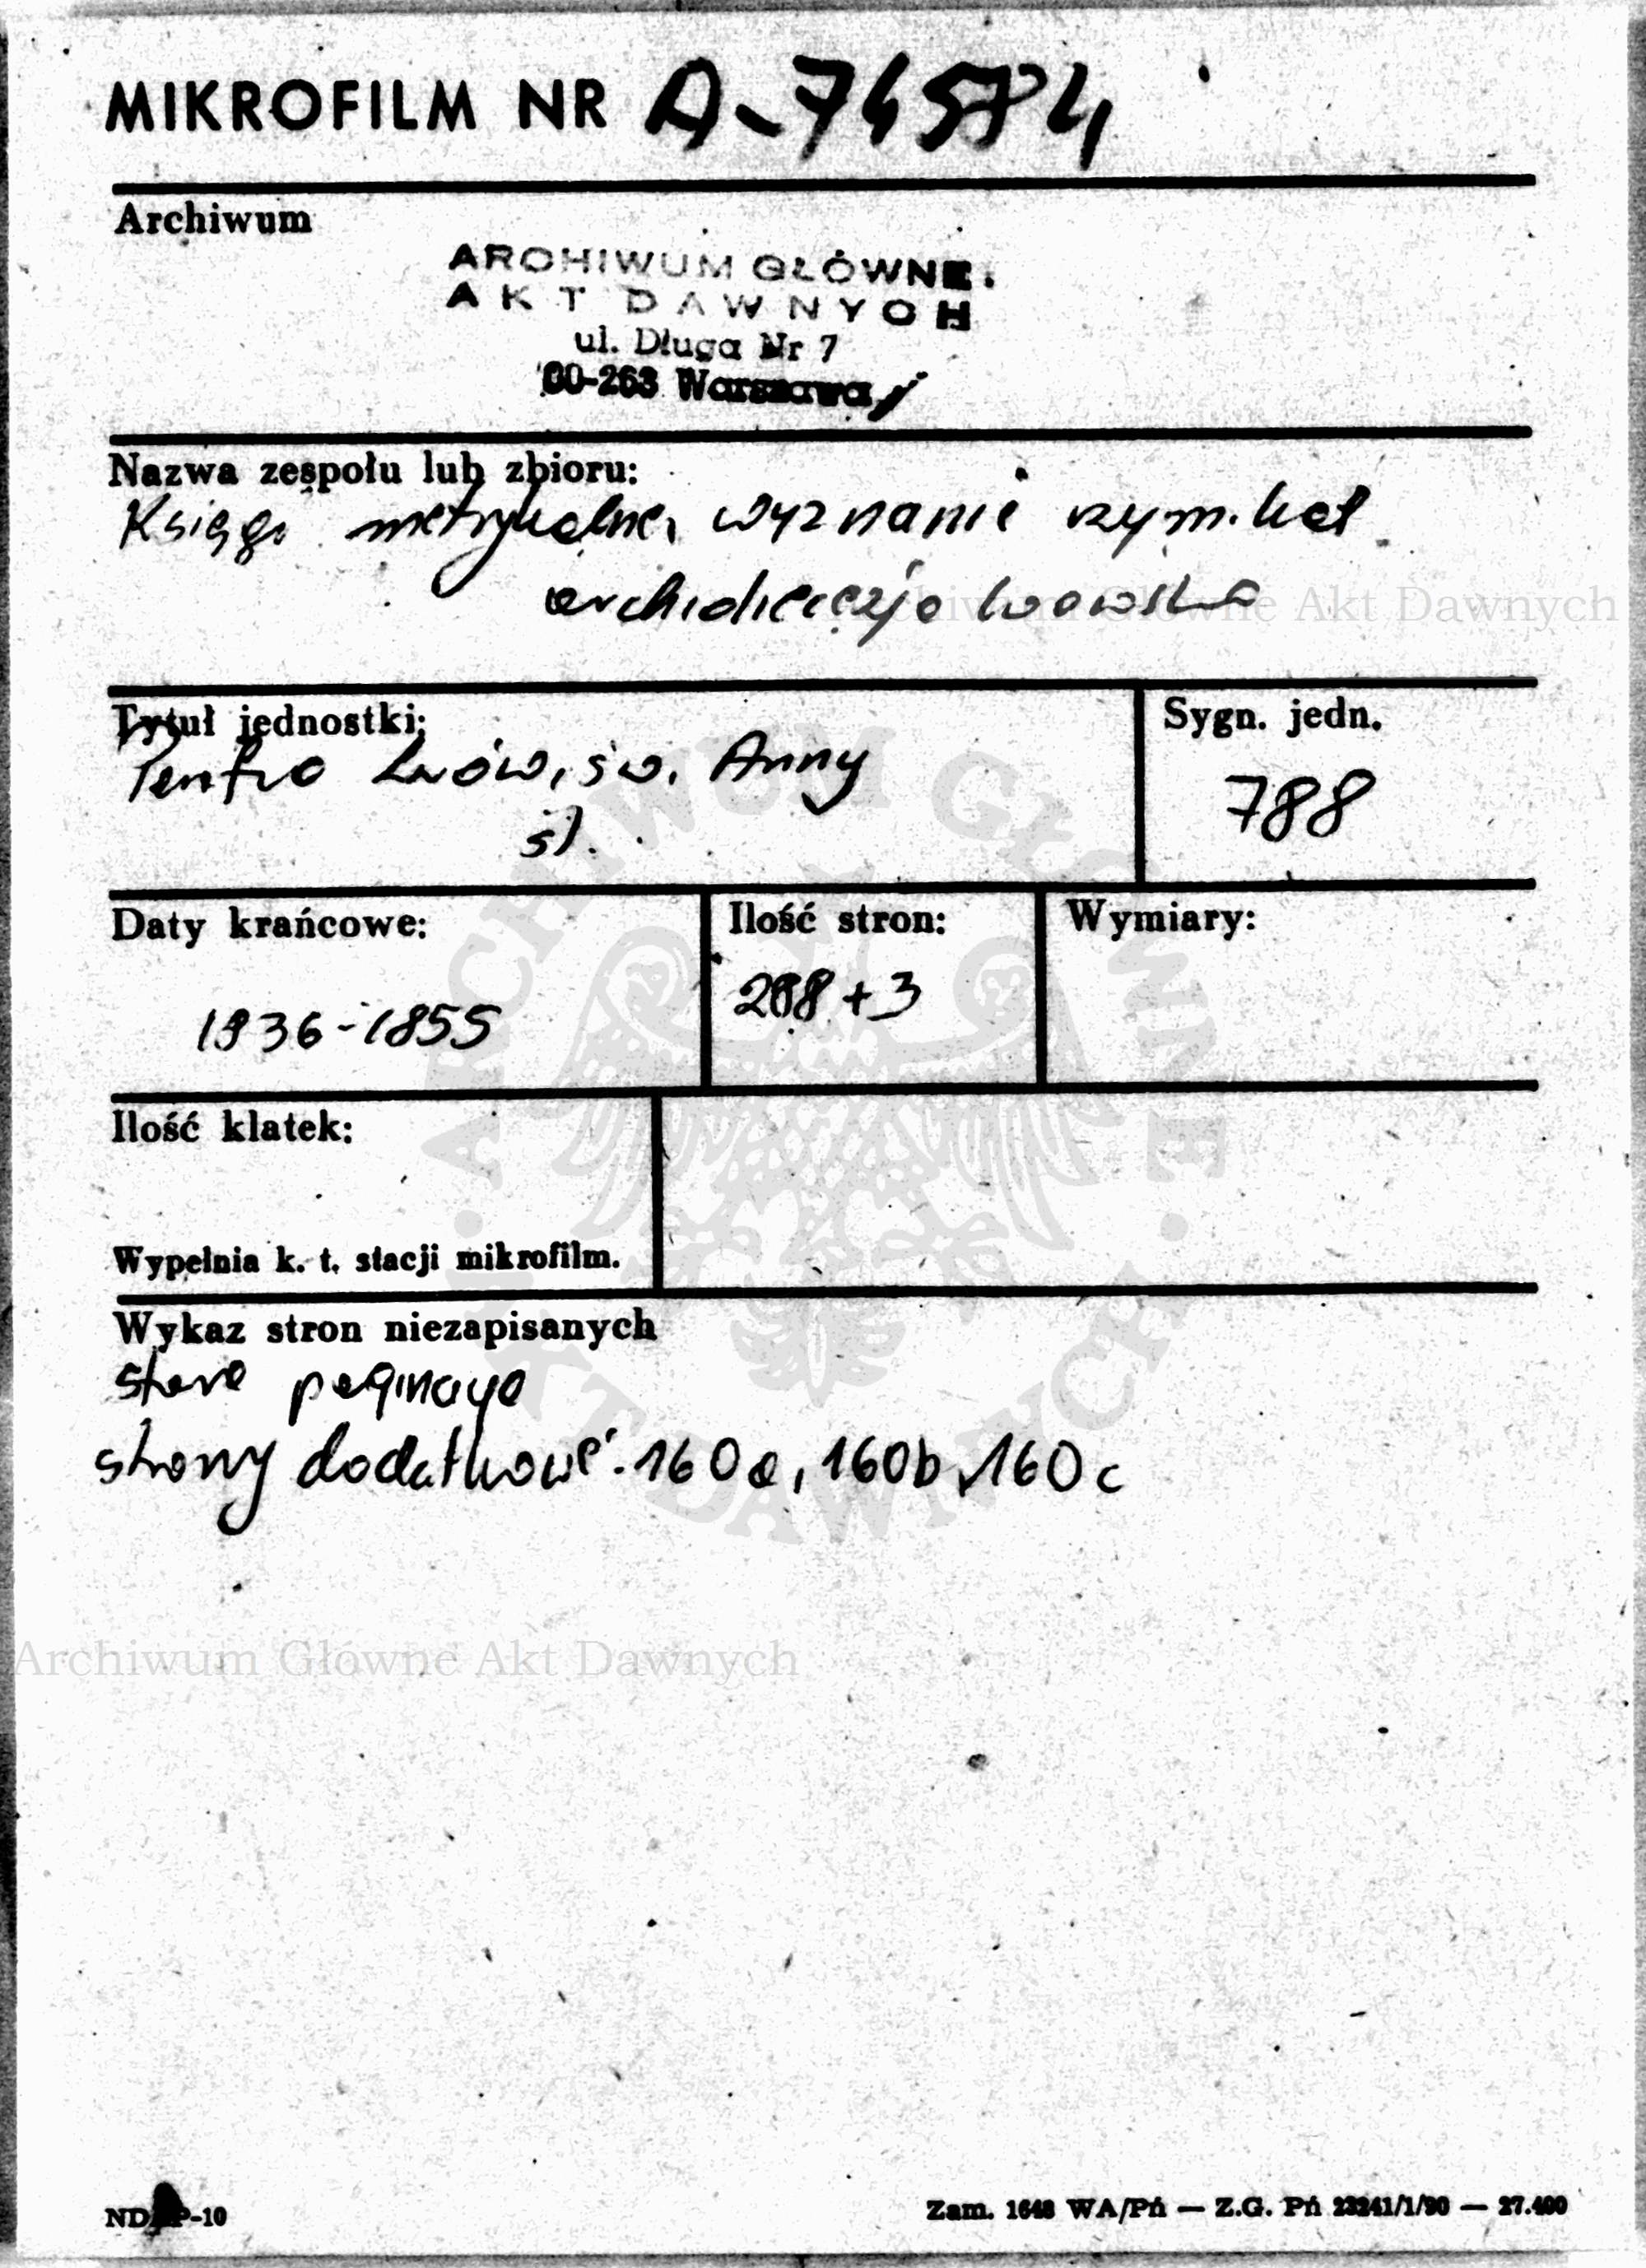 MIKROFILM NR A-74574
Archiwum
ARCHIWUM GŁÓWNE
AKT DAWNYCH
ul. Długa Nr 7
00-263 Warszawa
Nazwa zespołu lub zbioru:
Księgi metrykalne, wyznanie rzym. kat
archidiecezja lwowska
Archiwum Główne Akt Dawnych
Tytuł jednostki:
Sygn. jedn.
Lwów, św. Anny
788
śl.
Daty krańcowe:
Ilość stron:
Wymiary:
1836-1855
298+3
Ilość klatek:
Wypełnia k. t. stacji mikrofilm.
Wykaz stron niezapisanych
stara paginacja
strony dodatkowe: 160a, 160b, 160c
ARCHIWUM GŁÓWNE · AKT DAWNYCH ·
Archiwum Główne Akt Dawnych
NDAP-10
Zam. 1648 WA/Pń — Z.G. Pń 23241/1/90 — 27.400